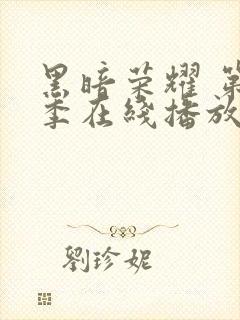 黑暗荣耀 第
季在线播放
劉珍妮